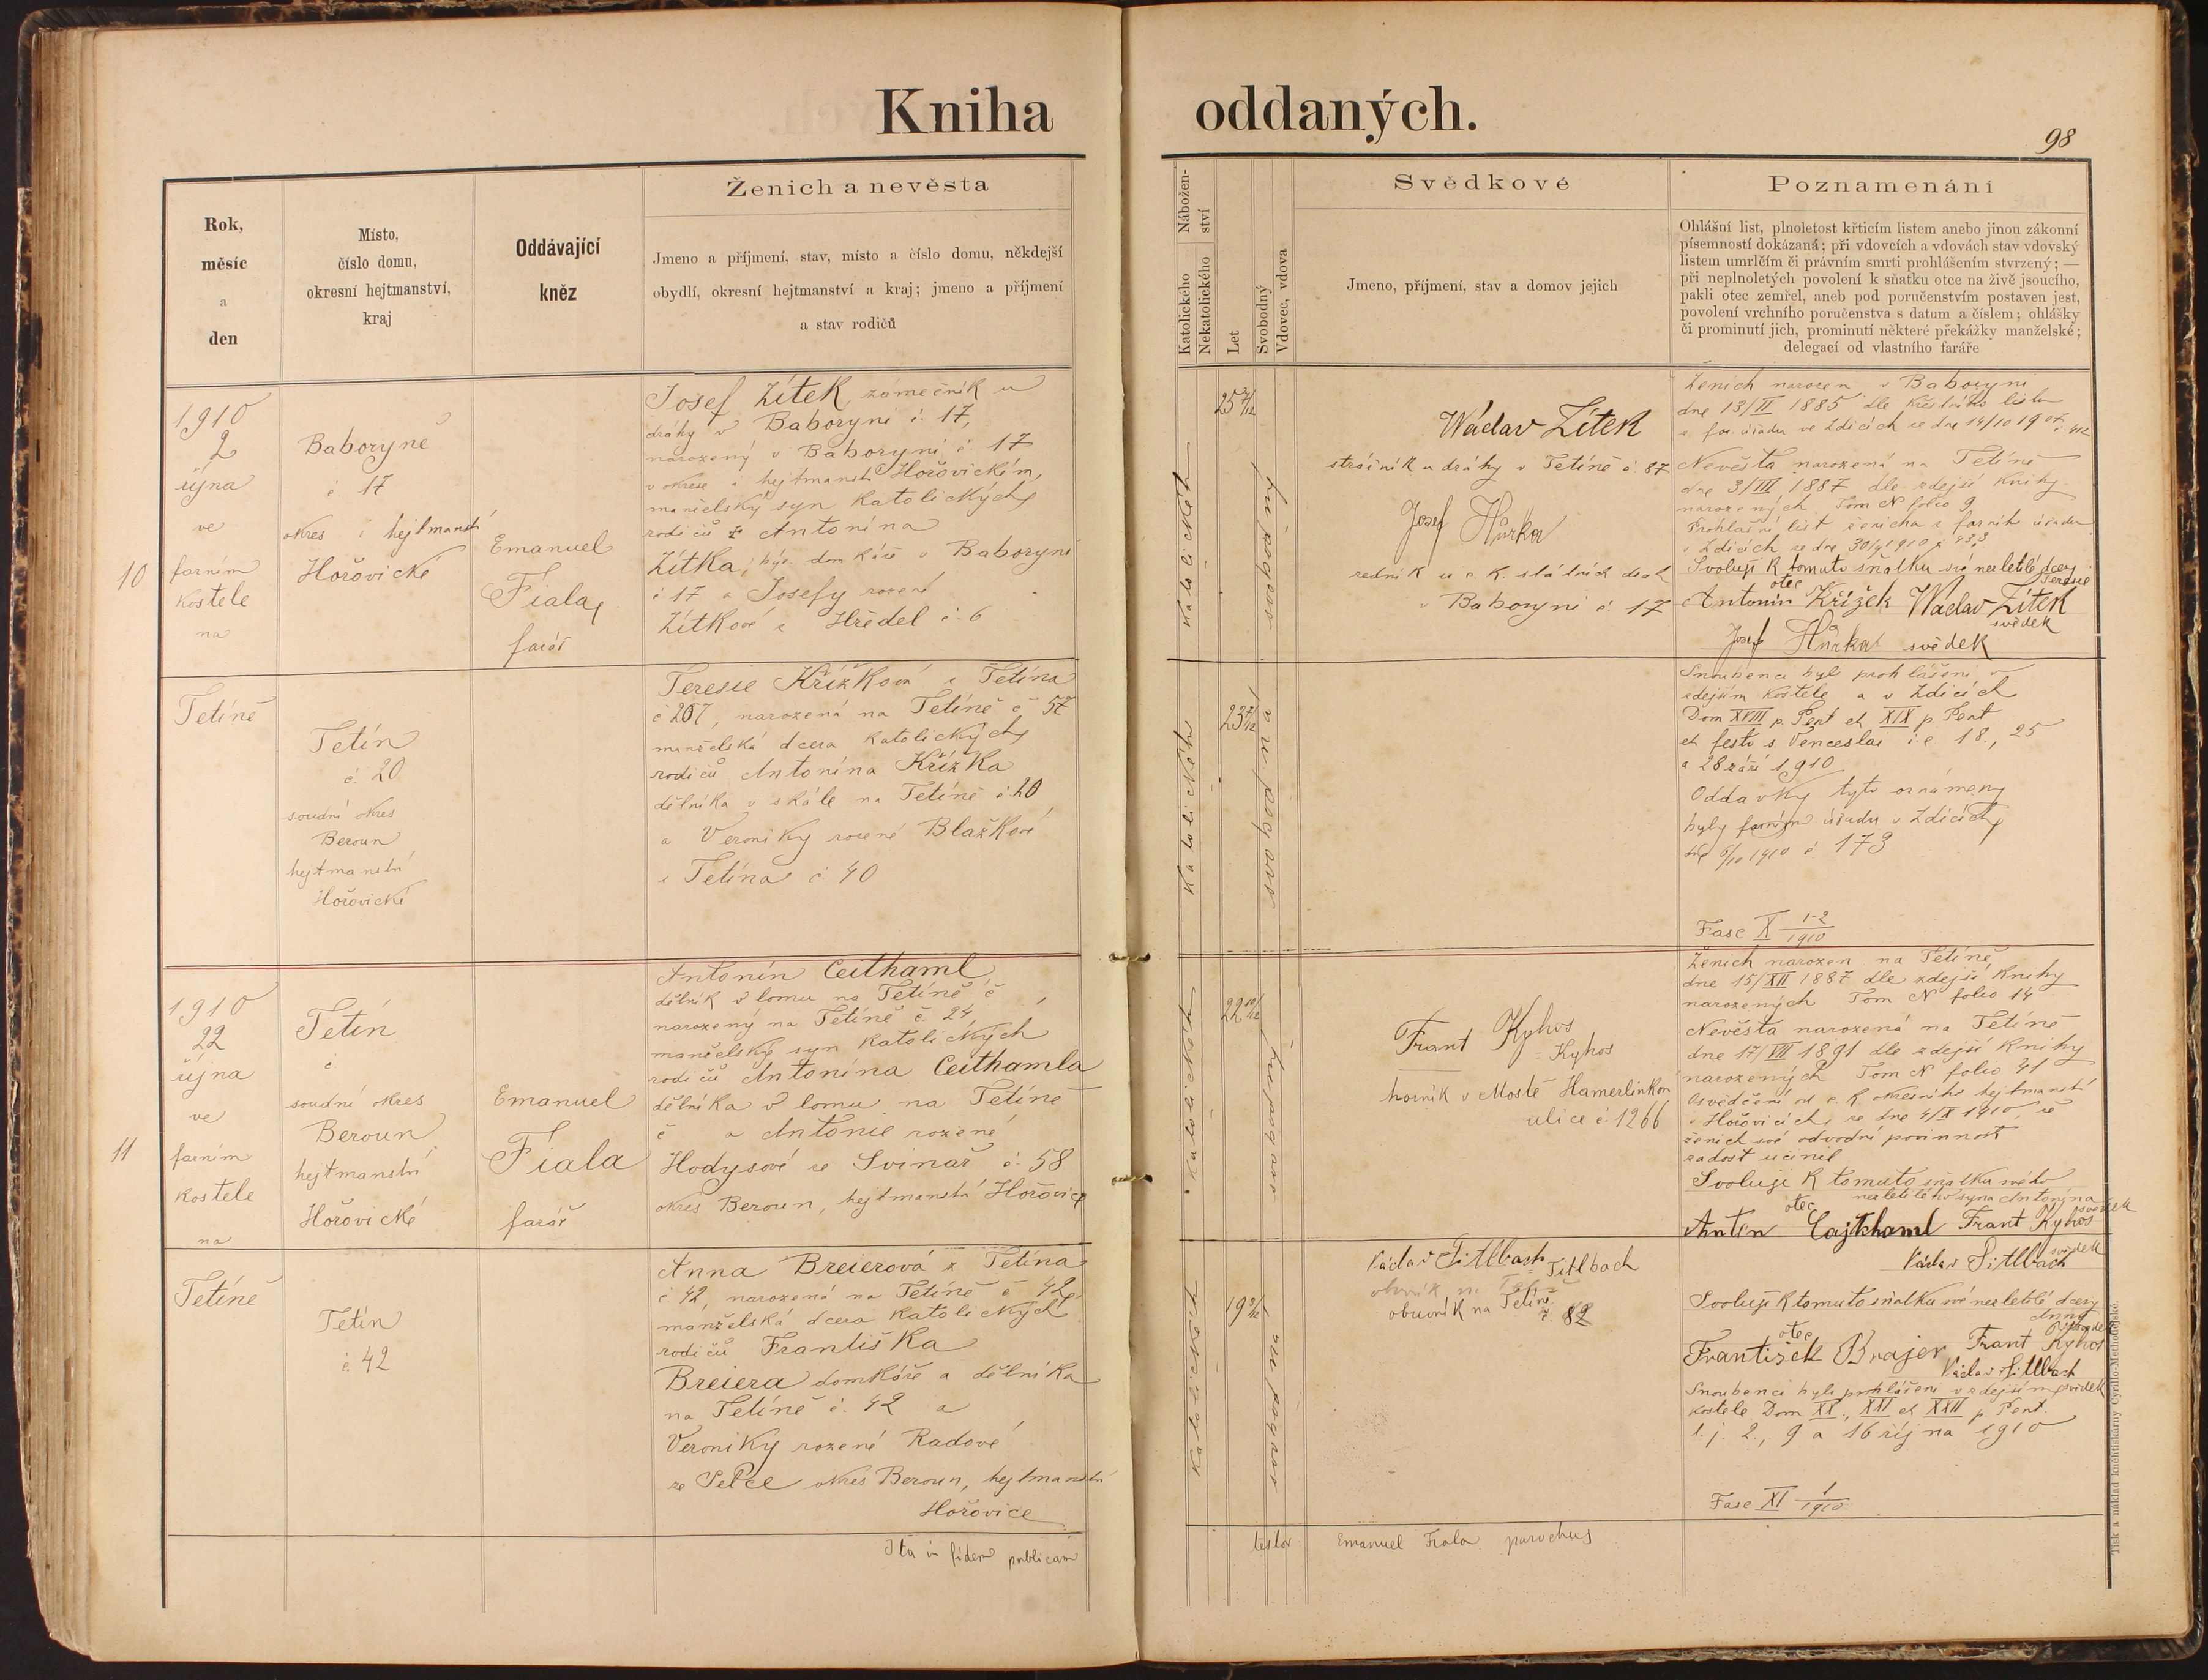 Kniha oddaných.
98
Rok,
měsíc
a
den
Místo,
číslo domu,
okresní hejtmanství,
kraj
Oddávající
kněz
Ženich a nevěsta
Jmeno a příjmení, stav, místo a číslo domu, někdejší
obydlí, okresní hejtmanství a kraj; jmeno a příjmení
a stav rodičů
Nábožen-
ství
Katolického
Nekatolického
Let
Svobodný
Vdovec, vdova
Svědkové
Jmeno, příjmení, stav a domov jejich
Poznamenání
Ohlášní list, plnoletost křticím listem anebo jinou zákonní
písemností dokázaná; při vdovcích a vdovách stav vdovský
listem umrlčím či právním smrti prohlášením stvrzený; —
při neplnoletých povolení k sňatku otce na živě jsoucího,
pakli otec zemřel, aneb pod poručenstvím postaven jest,
povolení vrchního poručenstva s datum a číslem; ohlášky
či prominutí jich, prominutí některé překážky manželské;
delegací od vlastního faráře
10
1910
2
října
ve
farním
kostele
na
Tetíně
Baboryně
č 17
okres i hejtmanství
Hořovické
Emanuel
Fiala,
farář
Josef Zítek, zámečník u
dráhy v Baboryni č. 17,
narozený v Baboryni č 17
v okrese i hejtmanství Hořovickém,
manželský syn katolických
rodičů Antonína
Zítka, býv. domkáře v Baboryni
č 17 a Josefy rozené
Zítkové z Hředel č. 6
katolického
25 7/12
svobodný
Wáclav Zítek
strážník u dráhy v Tetíně č. 87
Josef Hůrka
v Baboryni č. 17
Ženich narozen v Baboryni
dne 13/II 1885 dle křestního listu
Nevěsta narozená na Tetíně
dne 3/III 1887 dle zdejší knihy
narozených Tom N folio 9
Prohlašní list ženicha z farního úřadu
v Zdicích ze dne
Svoluji k tomuto sňatku své nezletilé dcery
Terezie
otec
Antonín Křížek Waclav Zítek
svědek
Josef Hůrka svědek
Tetín
č. 20
soudní okres
Beroun
hejtmanství
Hořovické
Teresie Křížková z Tetína
č 207, narozená na Tetíně č 57
manželská dcera katolických
rodičů Antonína Křížka
dělníka v skále na Tetíně č. 20
a Veroniky rozené Blažkové
z Tetína č. 40
katolického
23 7/12
svobodná
Snoubenci byli prohlášeni v
zdejším kostele a v Zdicích
Dom XVIII p. Pent et XIX p. Pent
et festo s. Venceslai i.e. 18., 25
a 28 září 1910
Oddavky tyto oznámeny
byly farním úřadu v Zdicích
dne 6/10 1910 č 173
Fasc X 1-2/1910
11
1910
22
října
ve
farním
kostele
na
Tetíně
Tetín
č
soudní okres
Beroun
hejtmanství
Hořovické
Emanuel
Fiala
farář
Antonín Ceithaml,
dělník v lomu na Tetíně č
narozený na Tetíně č. 24,
manželský syn katolických
rodičů Antonína Ceithamla
dělníka v lomu na Tetíně
č a Antonie rozené
Hodysové ze Svinař č. 58
okres Beroun, hejtmanství Hořovice
katolického
22 10/12
svobodný
Frant Kyhos
= Kyhos
horník v Mostě Hamerlinkova
ulice č. 1266
Ženich narozen na Tetíně
dne 15/XII 1887 dle zdejší knihy
narozených Tom N folio 14
Nevěsta narozená na Tetíně
dne 17/VII 1891 dle zdejší knihy
narozených Tom N folio 41
Osvědčení od c. k. okresního hejtmanství
v Hořovicích, ze dne 4/X 1910, že
ženich své odvodní povinnosti
zadost učinil
Svoluji k tomuto sňatku svého
nezletilého syna Antonína
otec svědek
Anton Cajthaml Frant Kyhos
svědek
Václav Titlbach
Tetín
č. 42
Anna Breierová z Tetína
č 42, narozená na Tetíně č 42,
manželská dcera katolických
rodičů Františka
Breiera domkáře a dělníka
na Tetíně č. 42 a
Veroniky rozené Radové
ze Srbce okres Beroun, hejtmanství
Hořovice
katolického
19 3/12
svobodná
Václav Titlbach = Titlbach
obuvník na Tetíně
č. 82
Svoluji k tomuto sňatku své nezletilé dcery
Anny
otec svědek
Frantizek Brajer Frant Kyhos
Václav Titlbach
svědek
Snoubenci byli prohlášeni v zdejším
kostele Dom XX., XXI et XXII p. Pent.
t. j. 2., 9 a 16 října 1910
Fasc XI 1/1910
Ita in fidem publicam
testor Emanuel Fiala parochus
Tisk a náklad knihtiskárny Cyrillo-Methodějské.